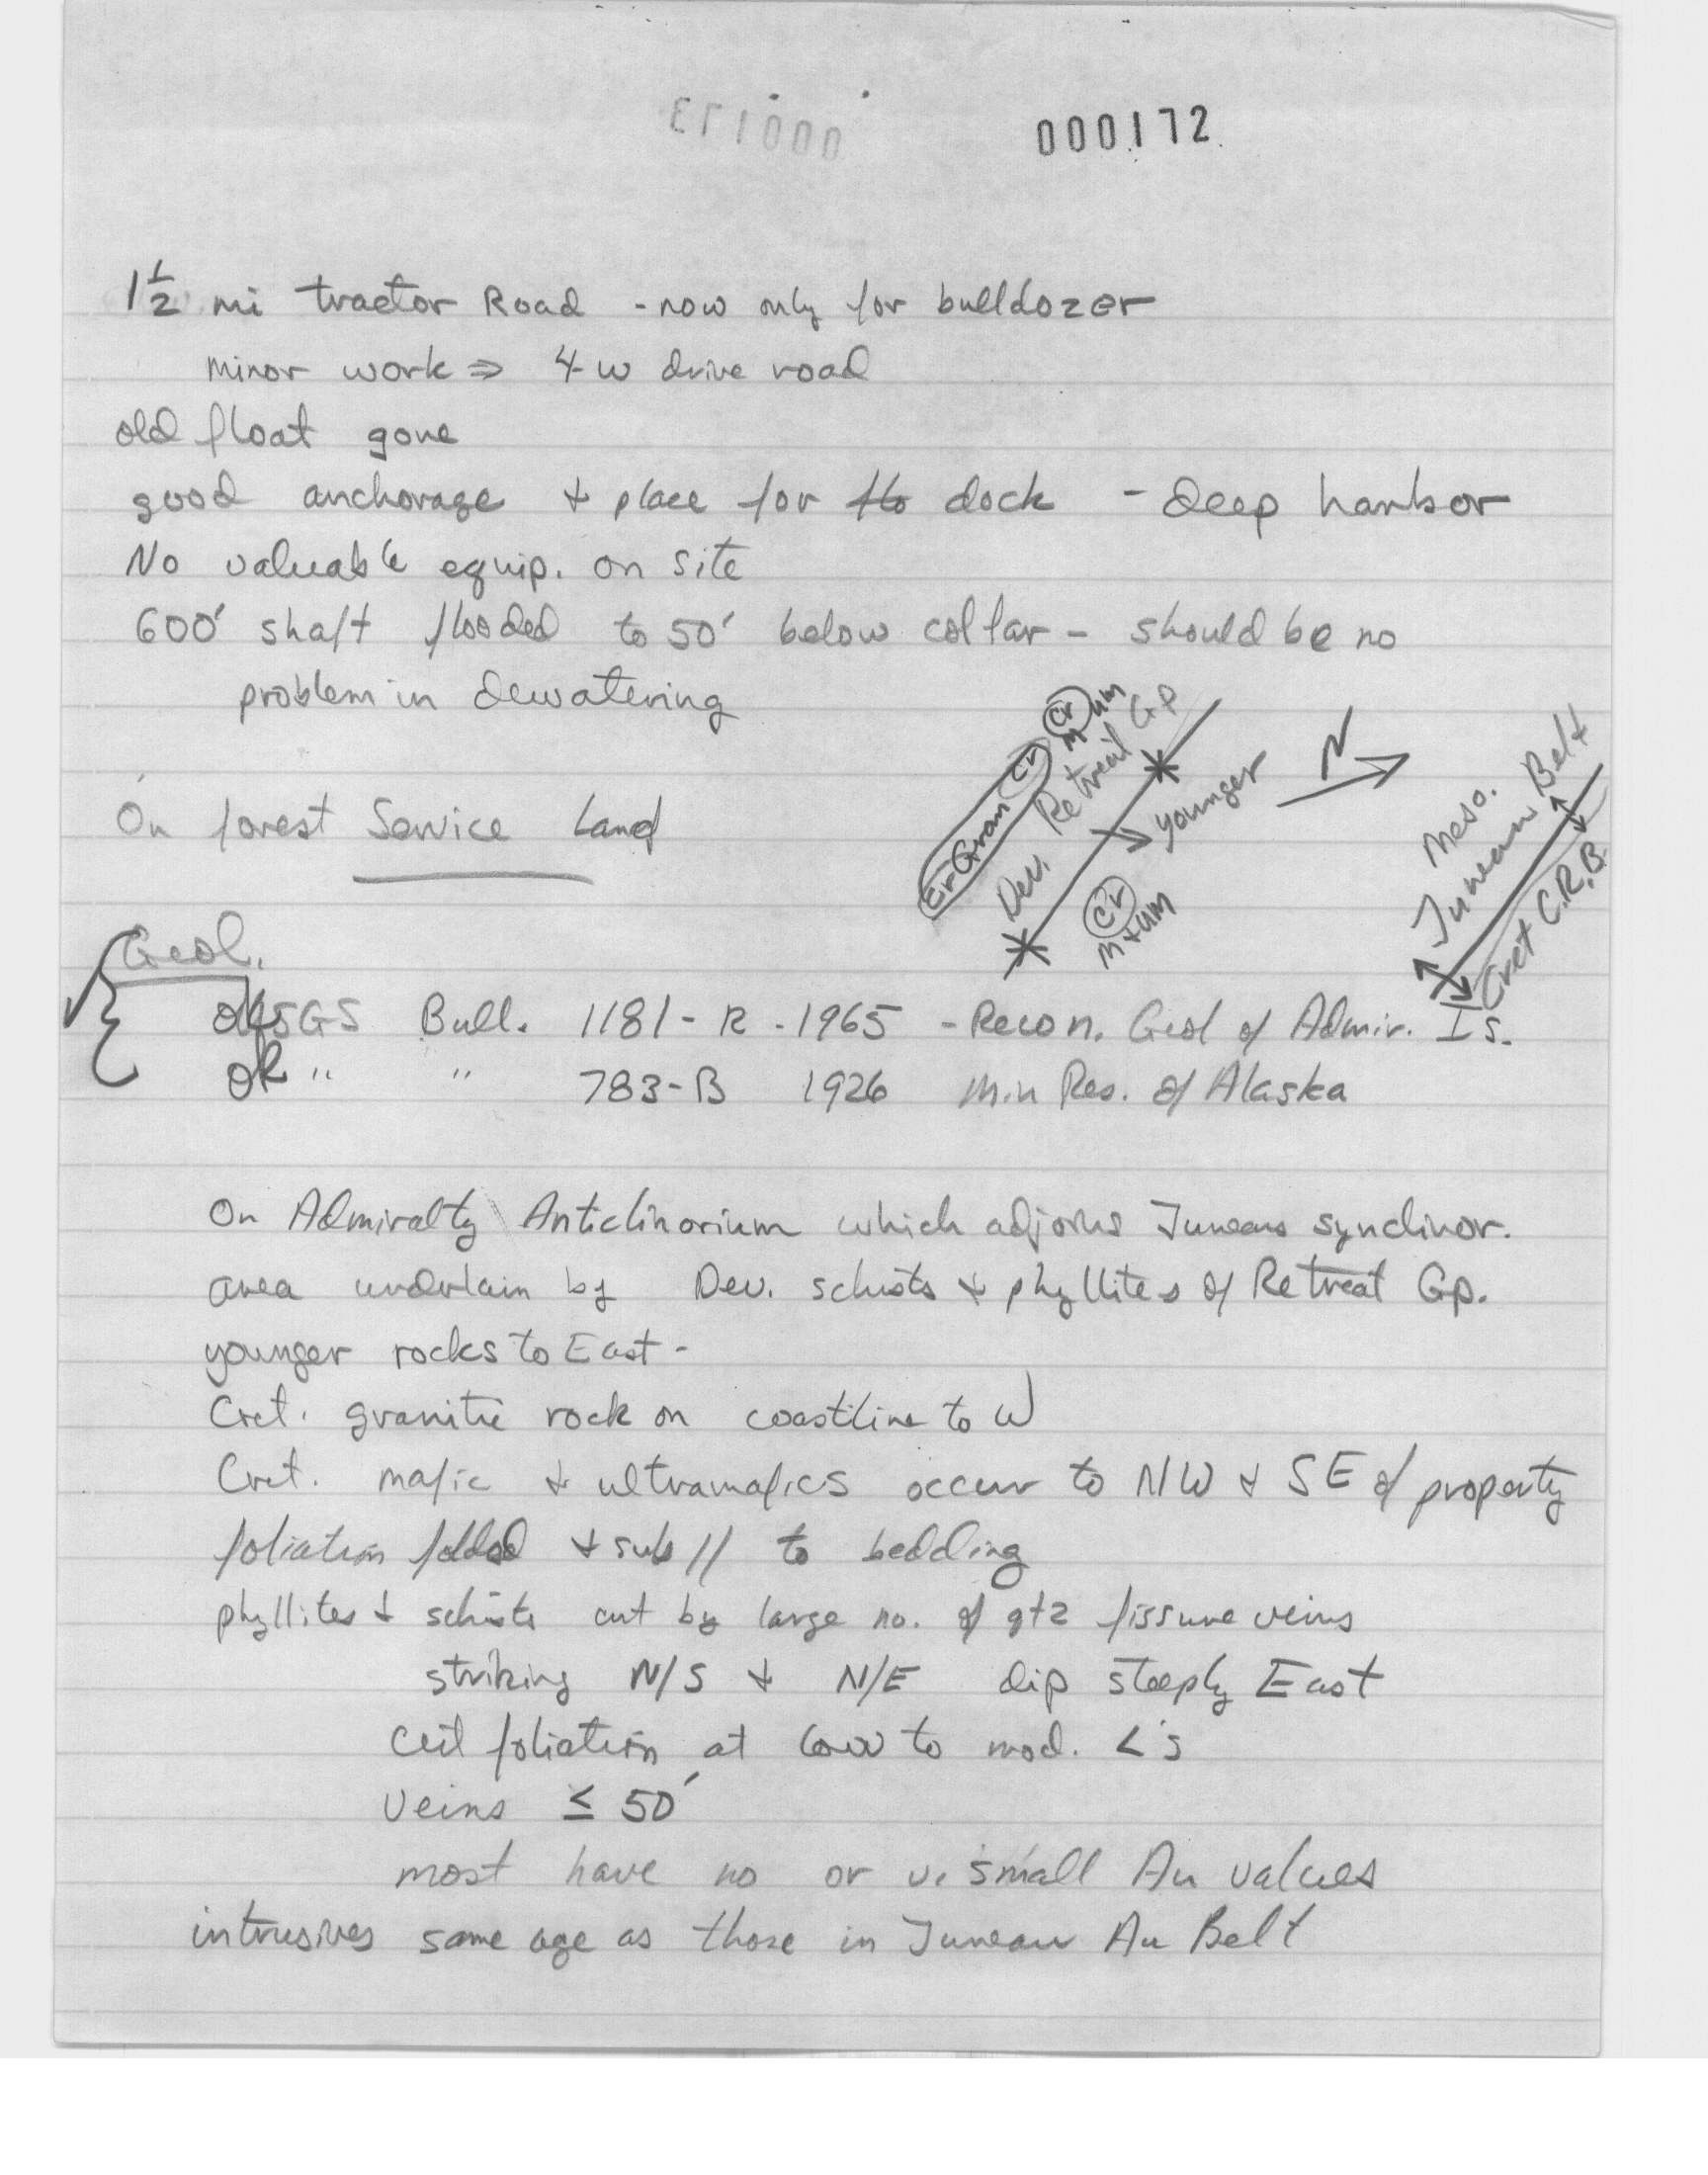 000172
1½ mi tractor Road - now only for bulldozer
minor work ⇒ 4-w drive road
old float gone
good anchorage + place for dock - deep harbor
No valuable equip. on site
600' shaft flooded to 50' below collar - should be no
problem in dewatering
Cr
M um
Cr Gran Cr
Dev. Retreat Gp
younger
N
Cr
M+um
Meso.
Juneau Belt
Cret C.R.B.
On forest Service Land
Geol.
ok USGS Bull. 1181-R - 1965 - Recon. Geol of Admir. Is.
ok " " 783-B 1926 Min Res. of Alaska
On Admiralty Anticlinorium which adjoins Juneau synclinor.
area underlain by Dev. schists + phyllites of Retreat Gp.
younger rocks to East -
Cret. granitic rock on coastline to W
Cret. mafic + ultramafics occur to NW + SE of property
foliation folded + sub // to bedding
phyllites + schists cut by large no. of qtz fissure veins
striking N/S + N/E dip steeply East
cut foliation at low to mod. <'s
veins ≤ 50'
most have no or v. small Au values
intrusives same age as those in Juneau Au Belt